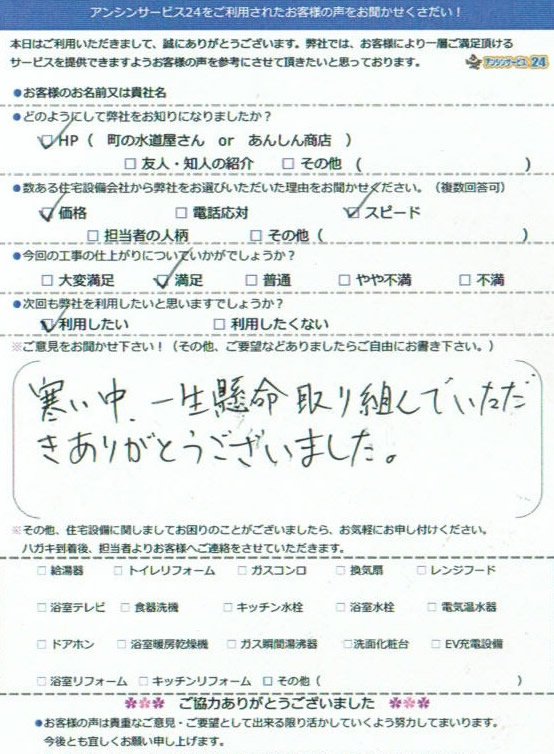 アンシンサービス24をご利用されたお客様の声をお聞かせくさだい！
本日はご利用いただきまして、誠にありがとうございます。弊社では、お客様により一層ご満足頂ける
サービスを提供できますようお客様の声を参考にさせて頂きたいと思っております。
アンシンサービス24
●お客様のお名前又は貴社名
●どのようにして弊社をお知りになりましたか？
☑HP（　町の水道屋さん　or　あんしん商店　）
□友人・知人の紹介　□その他（　）
●数ある住宅設備会社から弊社をお選びいただいた理由をお聞かせください。（複数回答可）
☑価格　□電話応対　☑スピード
□担当者の人柄　□その他（　）
●今回の工事の仕上がりについていかがでしょうか？
□大変満足　☑満足　□普通　□やや不満　□不満
●次回も弊社を利用したいと思いますでしょうか？
☑利用したい　□利用したくない
※ご意見をお聞かせ下さい！（その他、ご要望などありましたらご自由にお書き下さい。）
寒い中、一生懸命取り組んでいただ
きありがとうございました。
※その他、住宅設備に関しましてお困りのことがございましたら、お気軽にお申し付けください。
ハガキ到着後、担当者よりお客様へご連絡をさせていただきます。
□給湯器　□トイレリフォーム　□ガスコンロ　□換気扇　□レンジフード
□浴室テレビ　□食器洗機　□キッチン水栓　□浴室水栓　□電気温水器
□ドアホン　□浴室暖房乾燥機　□ガス瞬間湯沸器　□洗面化粧台　□EV充電設備
□浴室リフォーム　□キッチンリフォーム　□その他（　）
ご協力ありがとうございました
●お客様の声は貴重なご意見・ご要望として出来る限り活かしていくよう努力してまいります。
今後とも宜しくお願い申し上げます。